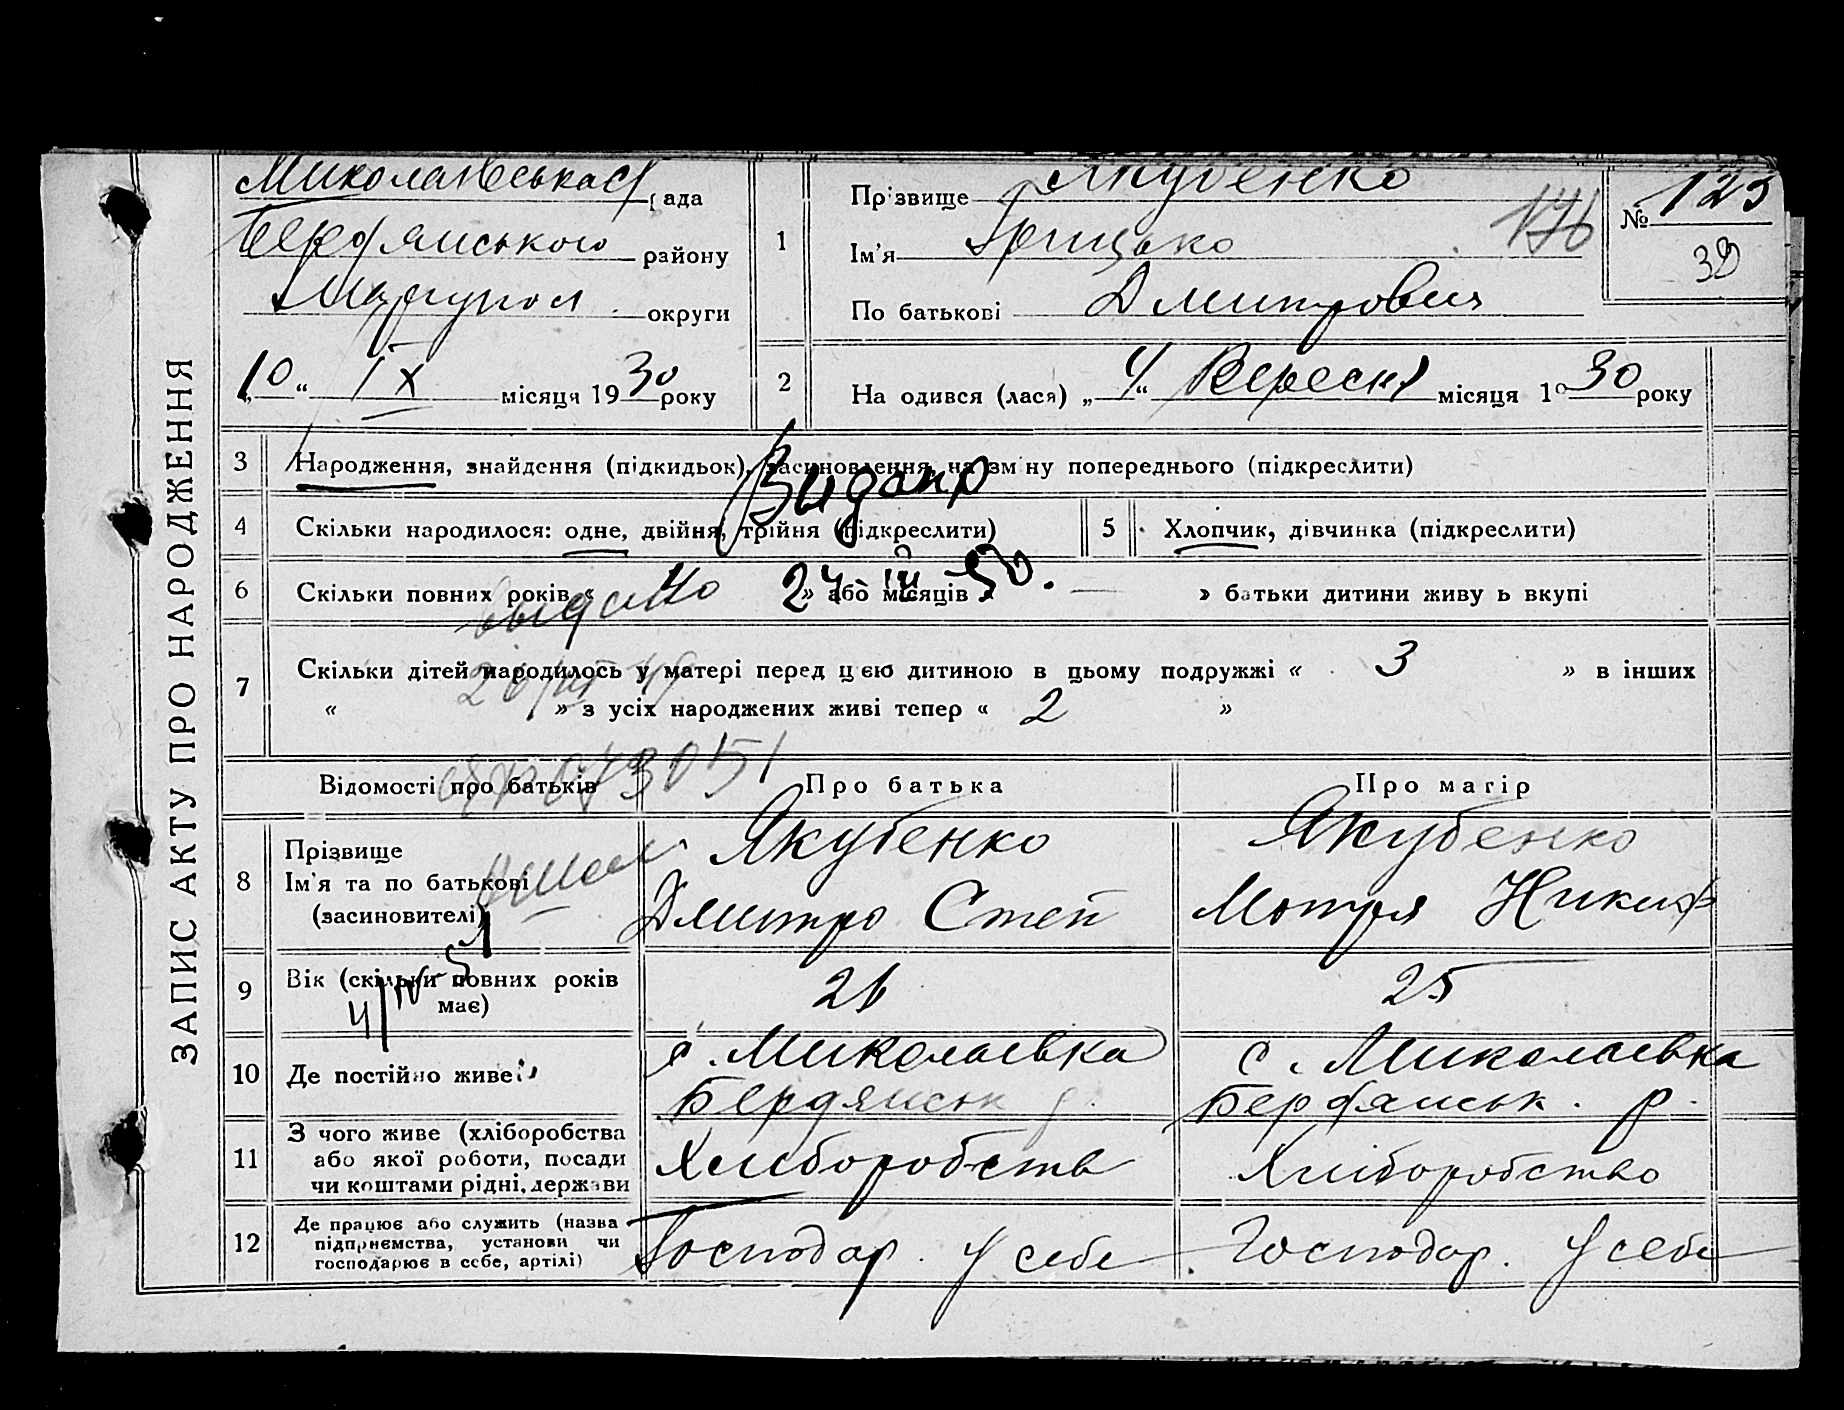 ЗАПИС АКТУ ПРО НАРОДЖЕННЯ
Миколаївська С/рада
Бердянського району
Маріупол. округи
„10“ IX місяця 1930 року
1 Прізвище Якубенко
Ім'я Грицько 176
По батькові Дмитрович
№ 123
39
2 На одився (лася) „4“ Вересня місяця 1930 року
3 Народження, знайдення (підкидьок), засиновлення, на зміну попереднього (підкреслити)
Выдано
4 Скільки народилося: одне, двійня, трійня (підкреслити) 5 Хлопчик, дівчинка (підкреслити)
24 III 50.
6 Скільки повних років « » або місяців « — » батьки дитини живу ь вкупі
выдано
7 Скільки дітей народилось у матері перед цією дитиною в цьому подружжі « 3 » в інших
« » з усіх народжених живі тепер « 2 »
Відомості про батьків Про батька Про матір
8 Прізвище
Ім'я та по батькові
(засиновителі)
Якубенко
Дмитро Степ
Якубенко
Мотря Никиф
9 Вік (скільки повних років
має)
26 25
10 Де постійно живе
с. Миколаївка
Бердянськ р.
с. Миколаївка
Бердянськ. р.
11 З чого живе (хліборобства
або якої роботи, посади
чи коштами рідні, держави
Хліборобств Хліборобство
12 Де працює або служить (назва
підприємства, установи чи
господарює в себе, артілі)
Господар. У себе Господар. У себе